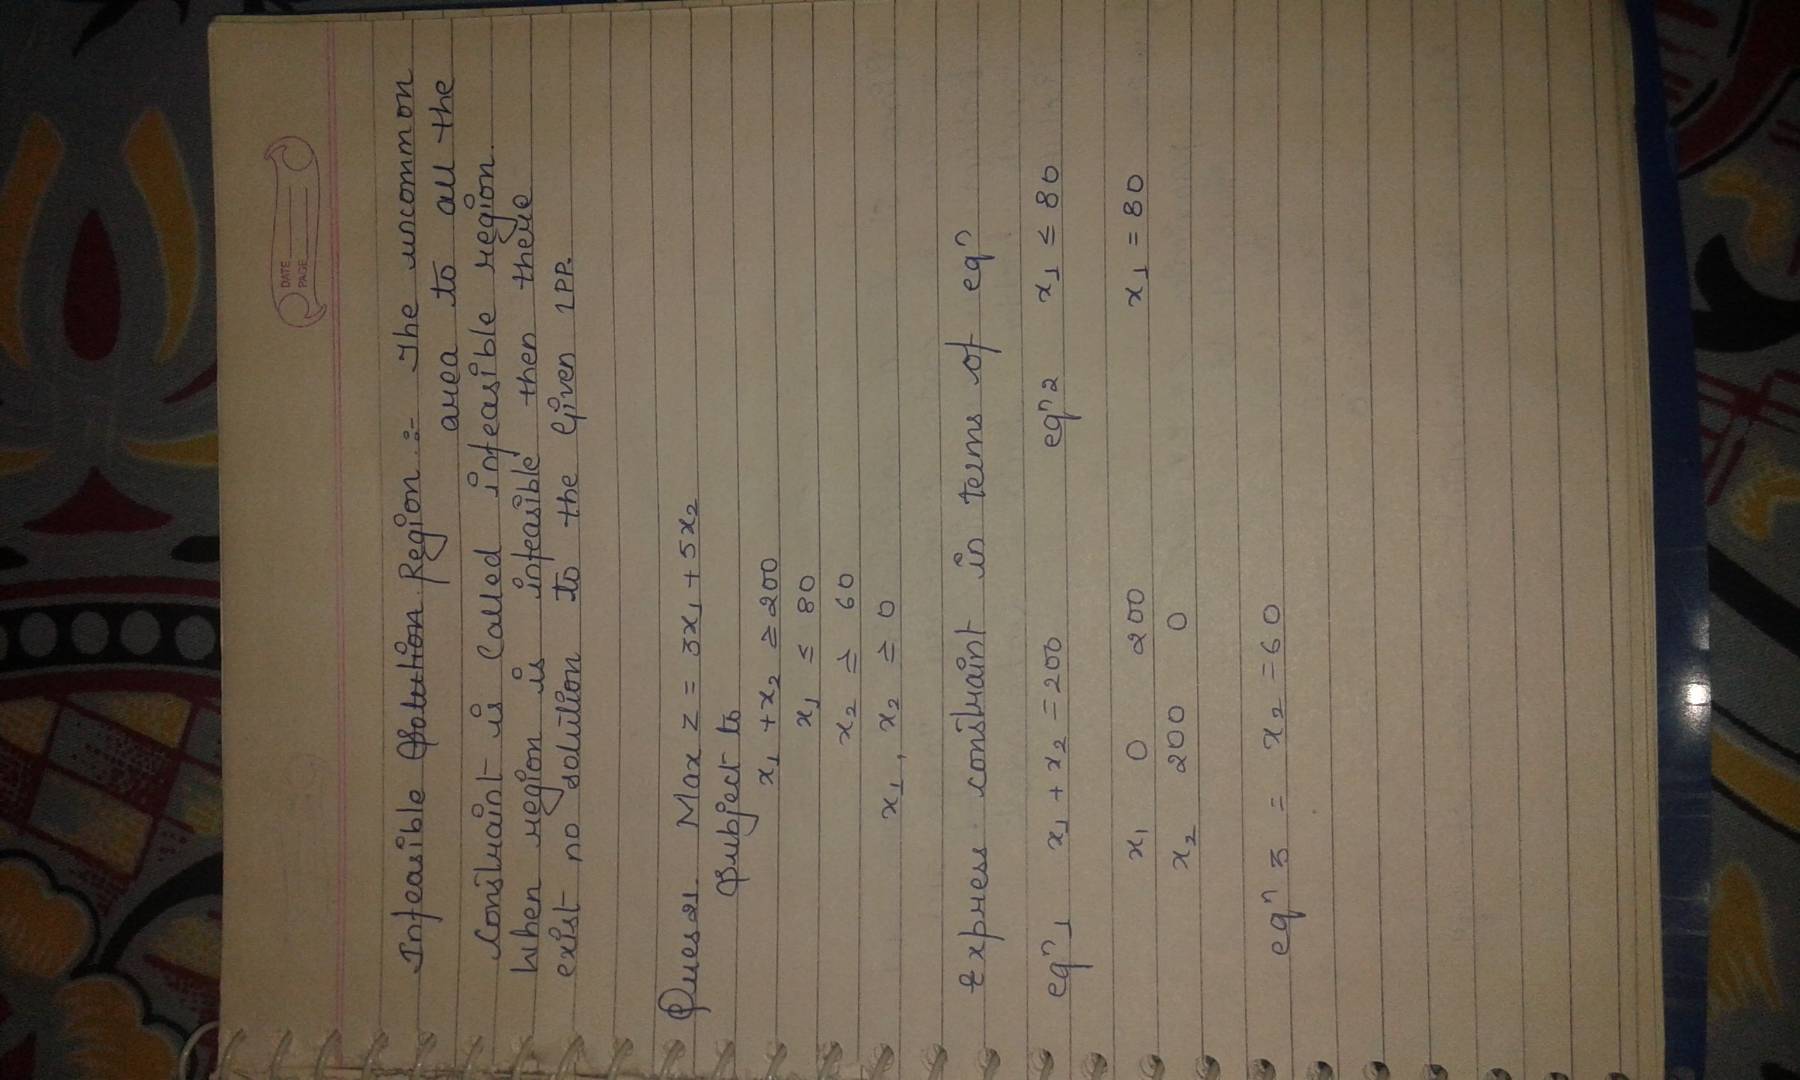 DATE
PAGE
Infeasible Solution Region :- The uncommon
area to all the
constraint is called infeasible region.
When region is infeasible then there
exist no solution to the given LPP.
Ques 21. Max z = 3x₁ + 5x₂
Subject to
x₁ + x₂ ≥ 200
x₁ ≤ 80
x₂ ≥ 60
x₁, x₂ ≥ 0
Express constraint in terms of eqⁿ
eqⁿ 1 x₁ + x₂ = 200 eqⁿ 2 x₁ ≤ 80
x₁ 0 200 x₁ = 80
x₂ 200 0
eqⁿ 3 = x₂ = 60